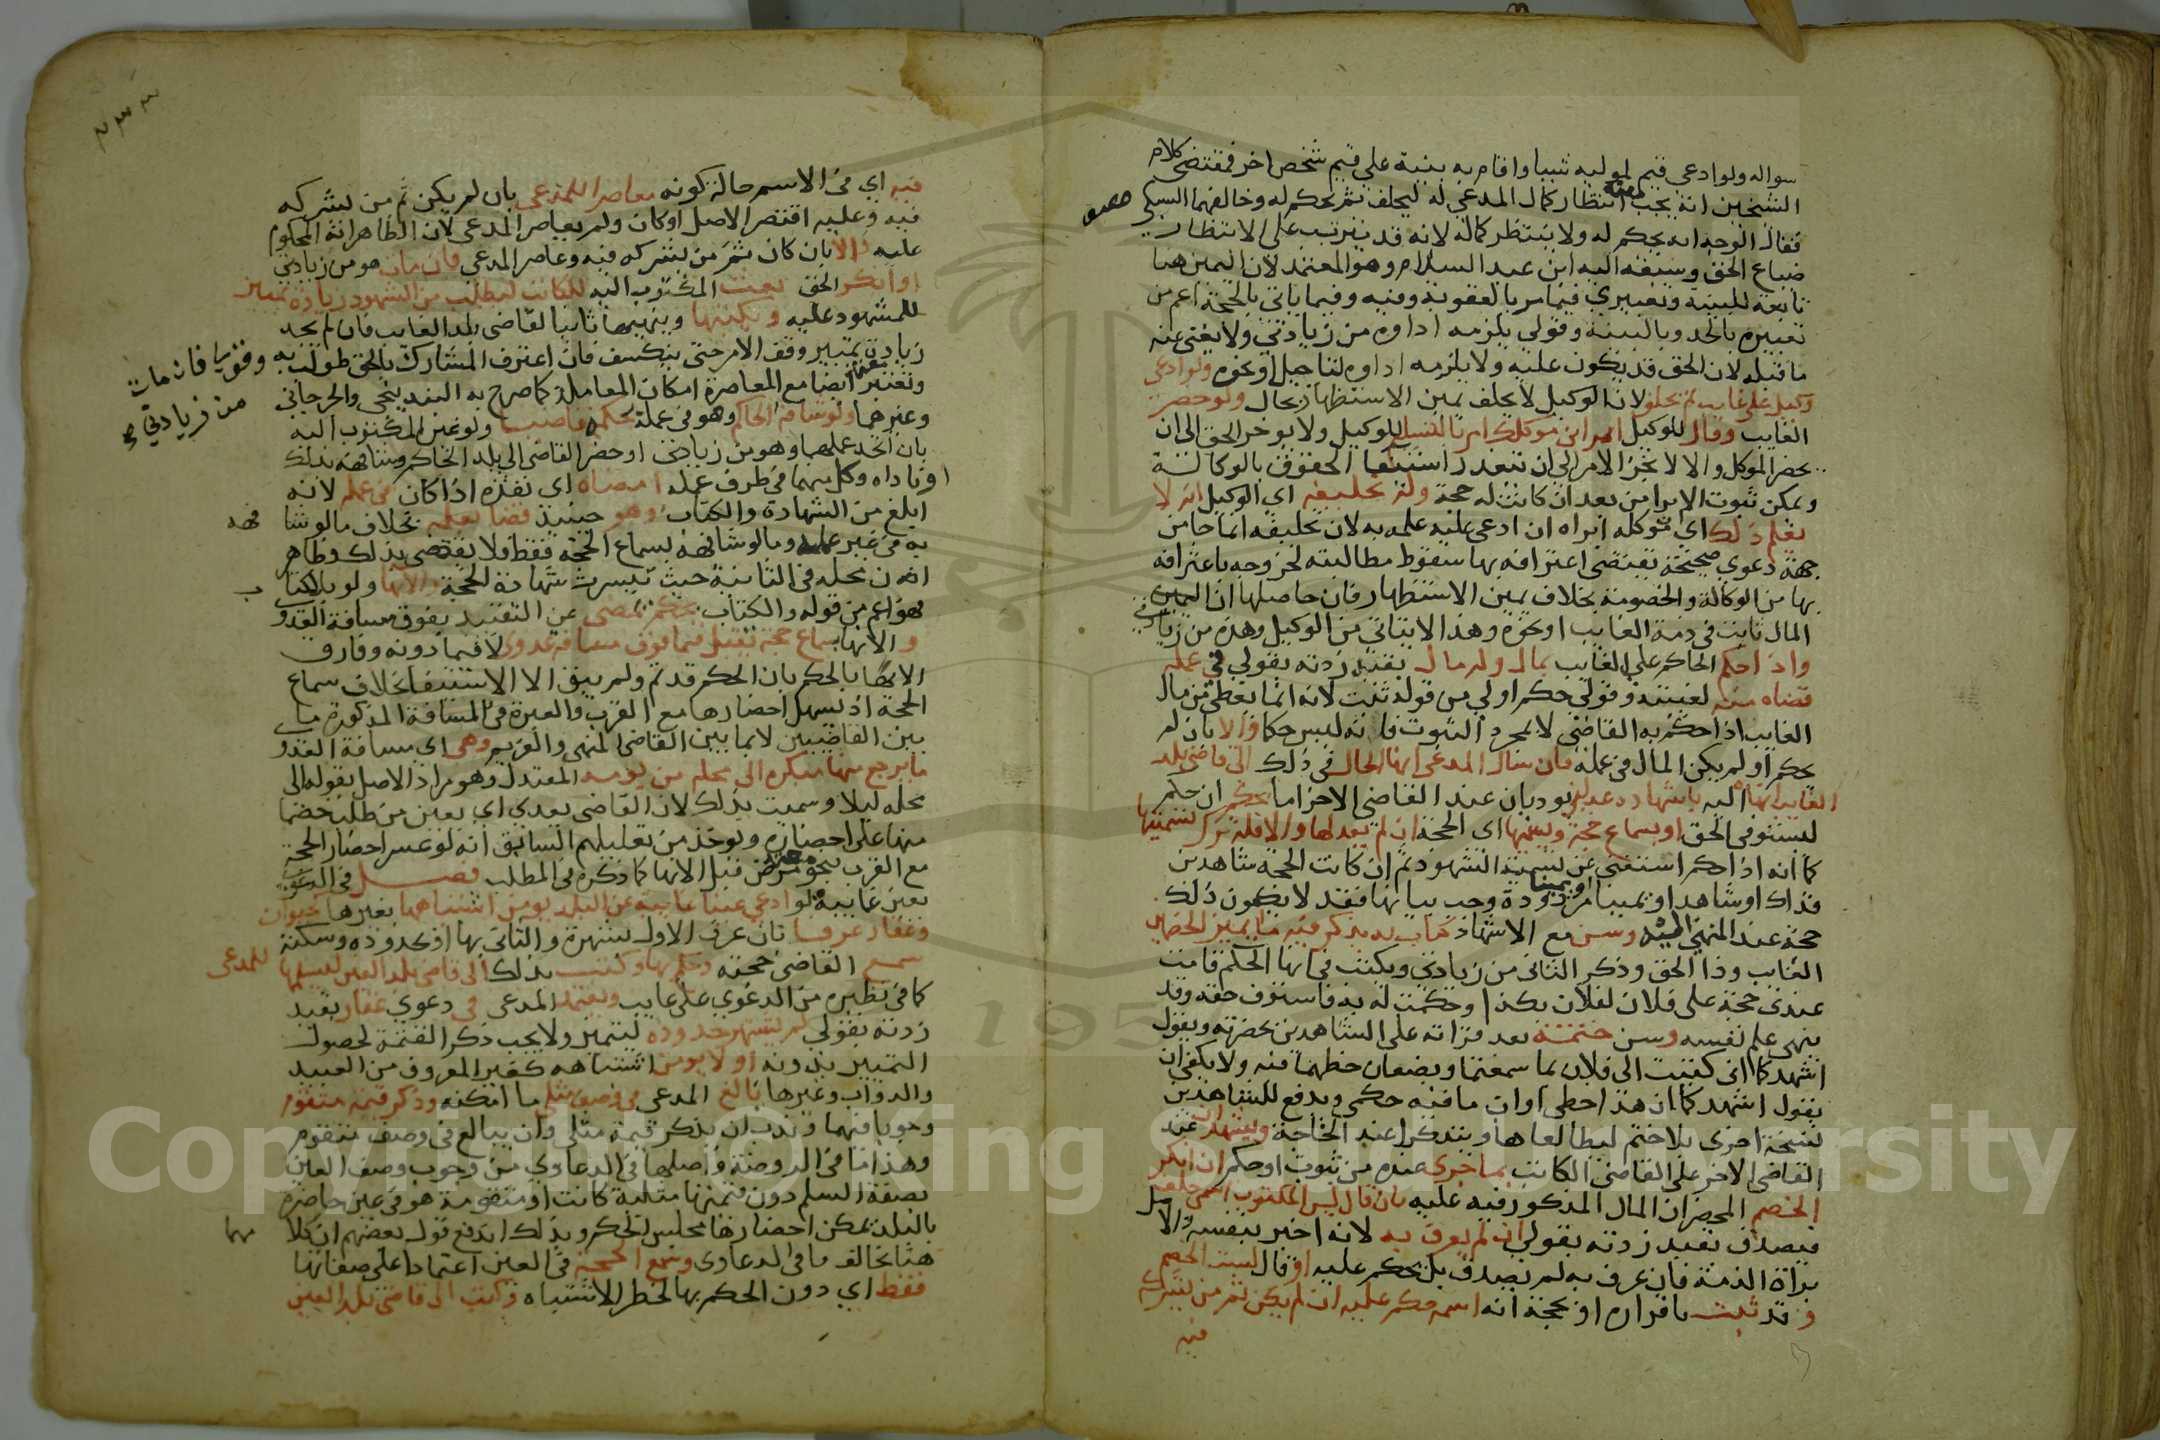 سواله ولو ادعى قيم لموليه شييا واقام به بينة على قيم شخص اخر فمقتضى كلام
الشيخين انه يجب انتظار كمال المدعي له ليحلف ثم يحكم له وخالفهما السبكي
فقال الوجه انه يحكم له ولا ينتظر كماله لانه قد يترتب على الانتظار
ضياع الحق وسبقه اليه ابن عبد السلام وهو المعتمد لان اليمين هنا
تابعة للبينة وتعبيري فيما مر بالعقوبة وفيه وفيما ياتي بالحجة اعم من
تعبيره بالحد وبالبينة وقولي يلزمه اداوه من زيادتي ولا يغني عنه
ما قبله لان الحق قد يكون عليه ولا يلزمه اداوه لتاجيل او نحوه ولو ادعى
وكيل على غايب لم يحلف لان الوكيل لا يحلف يمين الاستظهار بحال ولو حضر
الغايب وقال للوكيل ابراني موكلك امر بالتسليم للوكيل ولا يوخر الحق الى ان
يحضر الموكل والا لانجر الامر الى ان يتعذر استيفا الحقوق بالوكالة
ويمكن ثبوت الابرا من بعد ان كانت له حجة وله تحليفه اي الوكيل انه لا
يعلم ذلك اي موكله ابراه ان ادعى عليه علمه به لان تحليفه انما جا من
جهة دعوى صحيحة يقتضى اعترافه بها سقوط مطالبته لخروجه باعترافه
بها من الوكالة والخصومة بخلاف يمين الاستظهار فان حاصلها ان
المال ثابت في ذمة الغايب او نحوه وهذا لا يتاتى من الوكيل وهذه من زيادتي
واذا حكم الحاكم على الغايب بمال وله مال بقيد زدته بقولي في عمله
قضاه منه لغيبته وقولي حكم اولى من قوله ثبت لانه انما يعطى من مال
الغايب اذا حكم به القاضي لا بمجرد الثبوت فانه ليس حكما والا بان لم
يحكم او لم يكن المال في عمله فان سال المدعي انها الحال في ذلك الى قاضي بلد
الغايب انهاه اليه باشهاد عدلين يوديان عند القاضي الاخر اما بحكم ان حكم
ليستوفى الحق او بسماع حجة ويسميها اي الحجة ان لم يعدلها والا فله ترك تسميتها
كما انه اذا حكم استغنى عن تسمية الشهود ثم ان كانت الحجة شاهدين
فذاك او شاهدا ويمينا او يمينا مردودة وجب بيانها فقد لا يكون ذلك
حجة عند المنهى اليه وسن مع الاشهاد كتاب به يذكر فيه ما يميز الخصمين
الغايب وذا الحق وذكر الثاني من زيادتي ويكتب في انها الحكم قامت
عندي حجة على فلان لفلان بكذا وحكمت له به فاستوف حقه وقد
ينهي علم نفسه وسن ختمه بعد قراته على الشاهدين بحضرته ويقول
اشهدكما اني كتبت الى فلان بما سمعتما ويضعان خطهما فيه ولا يكفي ان
يقول اشهدكما ان هذا خطي او ان ما فيه حكمي ويدفع للشاهدين
نسخة اخرى بلا ختم ليطالعاها ويتذكرا عند الحاجة ويشهدان عند
القاضي الاخر على القاضي الكاتب بما جرى عنده من ثبوت او حكم ان انكر
الخصم المحضر ان المال المذكور فيه عليه بان قال ليس المكتوب اسمي حلف
فيصدق بقيد زدته بقولي ان لم يعرف به لانه اخبر بنفسه والاصل
براة الذمة فان عرف به لم يصدق بل يحكم عليه او قال لست الخصم
وقد ثبت باقراره او بحجة انه اسمه حكم عليه ان لم يكن ثم من يشركه
فيه
فيه اي في الاسم حالة كونه معاصرا للمدعي بان لم يكن ثم من يشركه
فيه وعليه اقتصر الاصل او كان ولم يعاصر المدعي لان الظاهر انه المحكوم
عليه والا بان كان ثم من يشركه فيه وعاصر المدعي فان مات هو من زيادتي
او انكر الحق بعث المكتوب اليه للكاتب ليطلب من الشهود زيادة تمييز
للمشهود عليه ويكتبها وينهيها ثانيا لقاضي بلد الغايب فان لم يجد
زيادة تمييز وقف الامر حتى ينكشف فان اعترف المشارك بالحق طولب به
ويعتبر ايضا مع المعاصرة امكان المعاملة كما صرح به البندنيجي والجرجاني
وغيرهما ولو شافه الحاكم وهو في عمله بحكمه قاضيا ولو غير المكتوب اليه
بان اتحد عملهما وهو من زيادتي او حضر القاضي الى بلد الحاكم وشافهه بذلك
او ناداه وكل منهما في طرف عمله امضاه اي نفذه اذا كان في عمله لانه
ابلغ من الشهادة والكتاب وهو حينيذ قضا بعلمه بخلاف ما لو شافهه
به في غير عمله وما لو شافهه بسماع الحجة فقط فلا يقضي بذلك وظاهر
ان محله في الثانية حيث تيسرت شهادة الحجة والانها ولو بلا كتاب
فهو اعم من قوله والكتاب بحكم يمضى عن التقييد بفوق مسافة العدو
والانها بسماع حجة يقبل فيما فوق مسافة عدوى لا فيما دونه وفارق
الانها بالحكم بان الحكم قد تم ولم يبق الا الاستيفا بخلاف سماع
الحجة اذ يسهل احضارها مع القرب والعبرة في المسافة المذكورة بما
بين القاضيين لا بما بين القاضي المنهي والغريم وهي اي مسافة العدو
ما يرجع منها مبكرا الى محله من يومه المعتدل وهو مراد الاصل بقوله الى
محله ليلا وسميت بذلك لان القاضي يعدي اي يعين من طلب خصما
منها على احضاره ويوخذ من تعليلهم السابق انه لو عسر احضار الحجة
مع القرب بنحو مرض قبل الانها كما ذكره في المطلب فصل في الدعوى
بعين غايبة لو ادعى عينا غايبة عن البلد يومن اشتباهها بغيرها كحيوان
وعقار عرفا بان عرف الاول بشهرة والثاني بها او بحدوده وسكنه
سمع القاضي حجته وحكم بها وكتب بذلك الى قاضي بلد العين ليسلمها للمدعي
كما في نظيره من الدعوى على غايب ويعتمد المدعي في دعوى عقار بقيد
زدته بقولي لم يشتهر حدوده ليتميز ولا يجب ذكر القيمة لحصول
التمييز بدونه او لا يومن اشتباهه كغير المعروف من العبيد
والدواب وغيرها بالغ المدعي في وصف مثلي ما امكنه وذكر قيمة متقوم
وجوبا فيهما وندب ان يذكر قيمة مثلي وان يبالغ في وصف متقوم
وهذا ما في الروضة واصلها في الدعاوي من وجوب وصف العين
بصفة السلم دون قيمتها مثلية كانت او متقومة هو في عين حاضرة
بالبلد يمكن احضارها مجلس الحكم وبذلك اندفع قول بعضهم ان كلا مهما
هنا يخالف ما في الدعاوى وسمع الحجة في العين اعتمادا على صفاتها
فقط اي دون الحكم بها لخطر الاشتباه وكتب الى قاضي بلد العين
وقوي فان مات
من زيادتي
٢٣٣
Copyright © King Saud University
1957